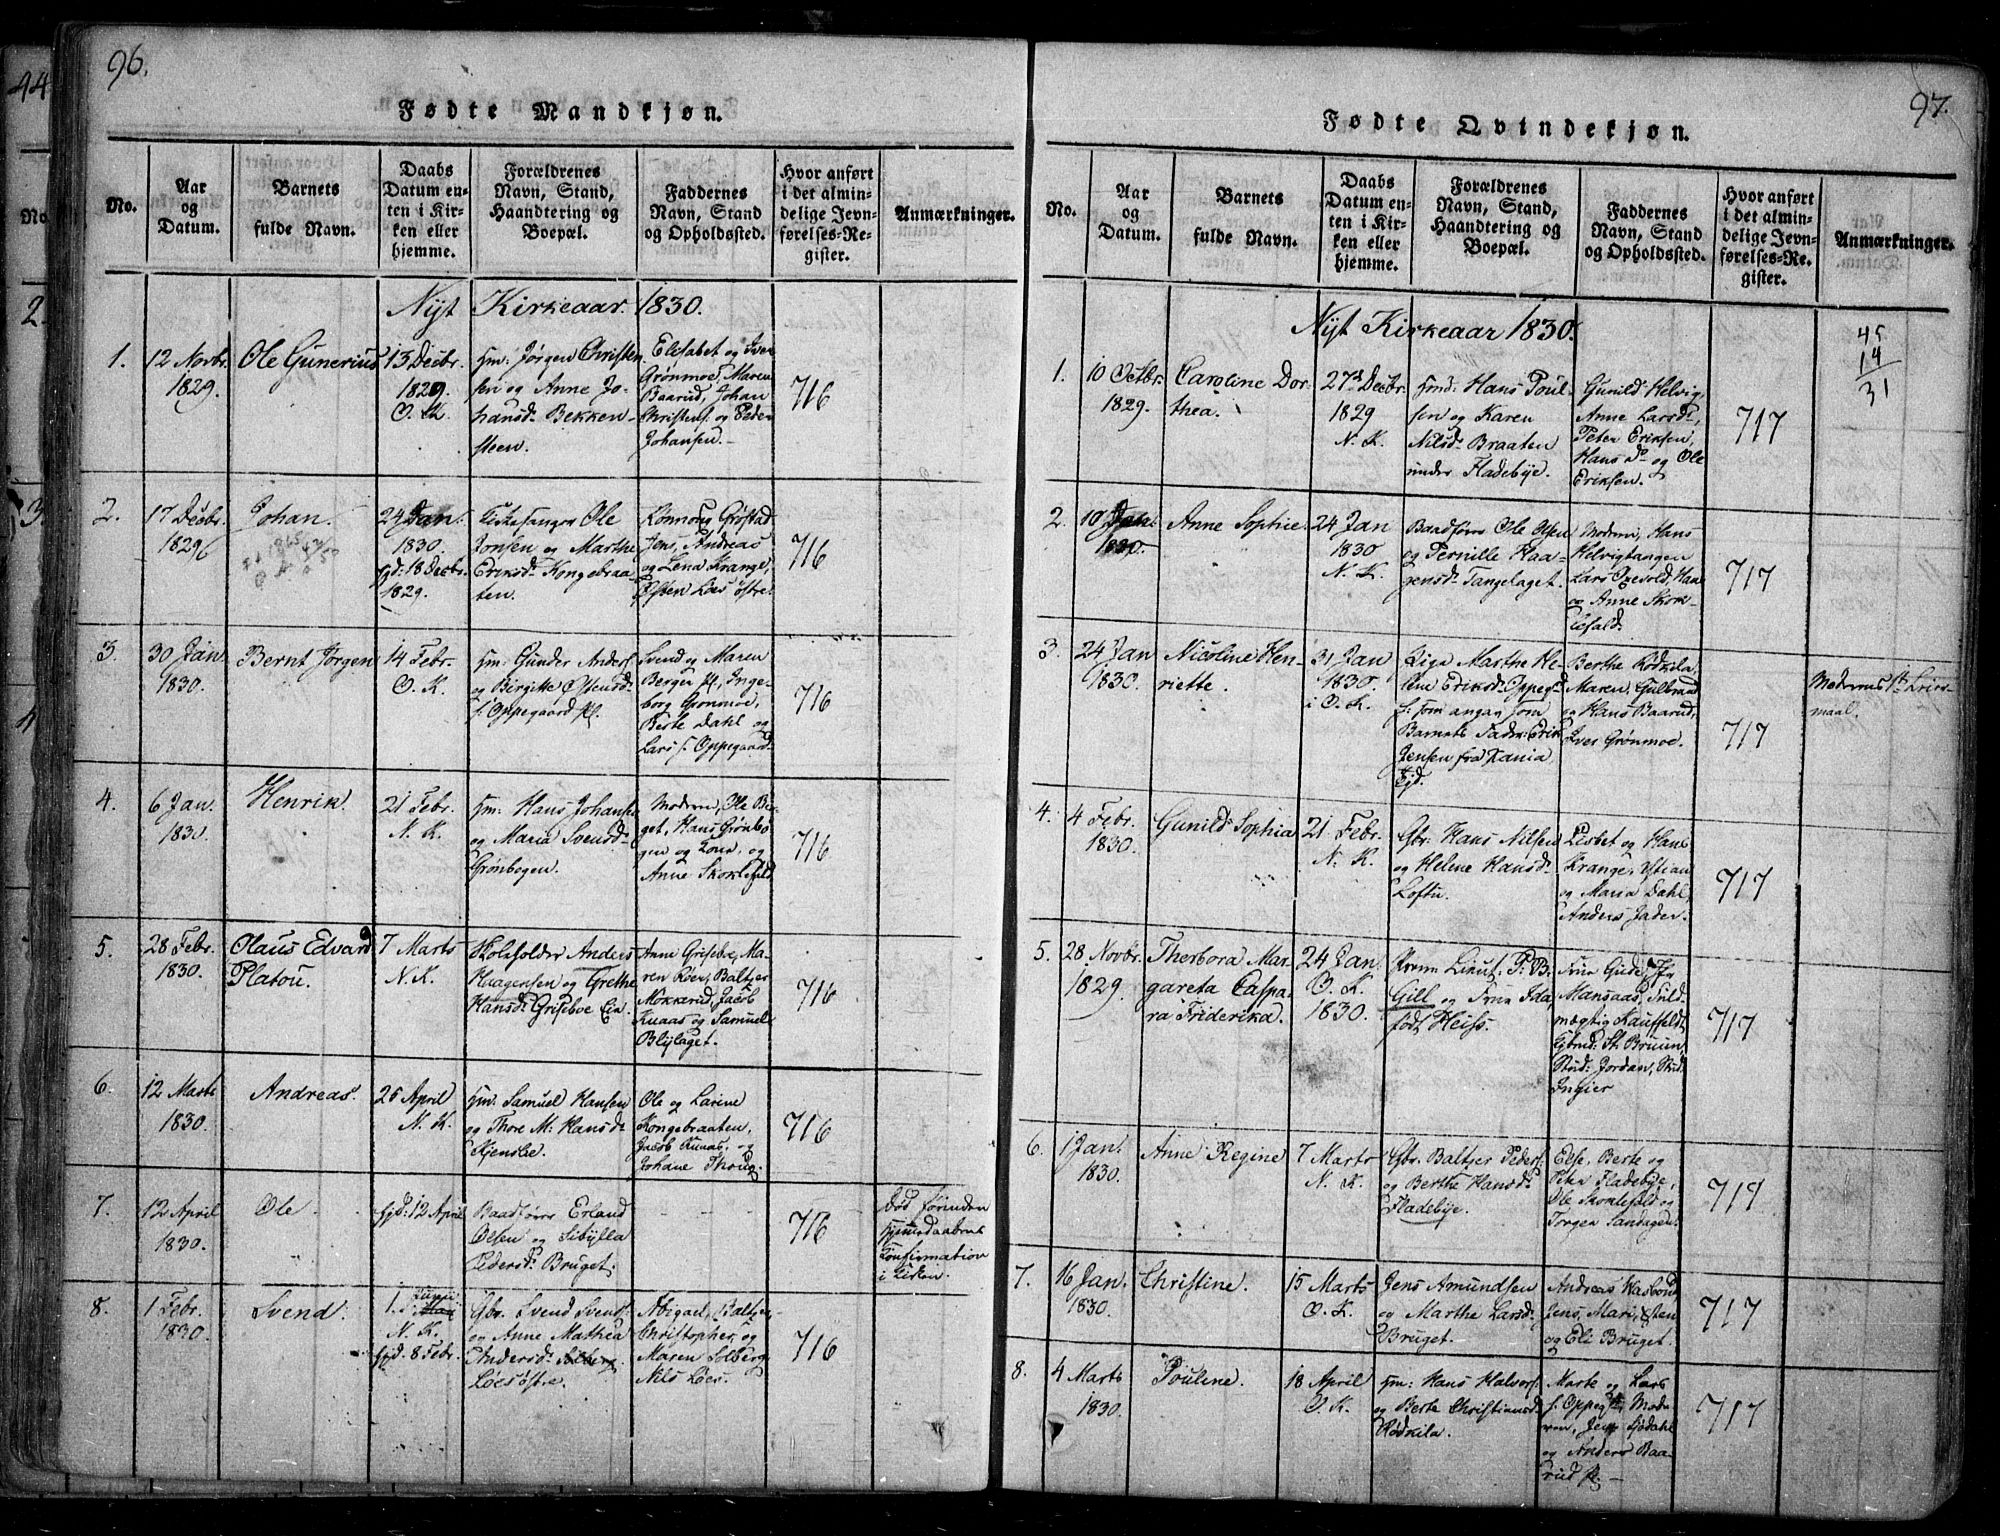 96.
Fødte Mandkjøn.
No.
Aar
og
Datum.
Barnets
fulde Navn.
Daabs
Datum en-
ten i Kir-
ken eller
hjemme.
Forældrenes
Navn, Stand,
Haandtering og
Boepæl.
Faddernes
Navn, Stand
og Opholdssted.
Hvor anført
i det almin-
delige Jevn-
førelses-Re-
gister.
Anmærkninger.
Nyt Kirkeaar 1830.
1.
12 Novbr.
1829.
Ole Gunerius
13 Decbr.
1829.
O. K.
Jørgen Christen
sen og Anne Jo-
hansd. Bekken-
steen.
Elisabet og Iver
Grønmoe, Maren
Baarud, Johan
Christens. og Peder
Johansen.
716
2.
17 Decbr.
1829
Johan.
24 Jan.
1830.
hjd: 18 Decbr.
1829.
Ole
Jonsen og Marthe
Eriksd. Kongebraa-
ten.
Grøstad
Jens, Andreas
og Lena Krange,
Østen Løes østre.
716
3.
30 Jan.
1830.
Bernt Jørgen
14 Febr.
O. K.
Gunder Anders.
og Birgitte Østensd.
Oppegaard
Svend og Maren
Berger, Inge-
borg Grønmoe,
Berte Dahl og
Lars Oppegaard.
716
4.
6 Jan.
1830.
Henrik.
21 Febr.
N. K.
Hans Johans.
og Maria Svensd.
Grønbogen.
Moderen, Ole Ber-
get, Hans Grønbo-
gen og Kone, og
Anne Skoklefald
716
5.
28 Febr.
1830.
Olaus Edvard
Platou.
7 Marts
N. K.
Skoleholder Anders
Haagensen og Grethe
Hansd. Grisebve
Anne Grisebve, Ma-
ren Røer, Baltzer
Mokkerud, Jacob
Knaas og Samuel
Blylaget.
716
6.
12 Marts
1830.
Andreas.
25 April
N. K.
Samuel Hansen
og Thore M. Hansd.
Kjenslie.
Ole og Larine
Kongebraaten,
Jacob Knaas, og
Johane Thoug.
716
7.
12 April
1830.
Ole
hjd: 12 April
Baadfører Erland
Olsen og Sibylla
Pedersd. Bruget.
716
Død førinden
Hjemdaabens
Confirmation
i Kirken.
8.
1 Febr.
1830.
Svend.
1. Junii
N. K.
hjd. 8 Febr.
Gbr. Svend Svends.
og Anne Mathea
Andersd. Solberg
Løes østre.
Abigael, Baltzer,
Christopher, og
Maren Solberg,
Nils Løes.
716
97.
Fødte Qvindekjøn.
No.
Aar
og
Datum.
Barnets
fulde Navn.
Daabs
Datum en-
ten i Kir-
ken eller
hjemme.
Forældrenes
Navn, Stand,
Haandtering og
Boepæl.
Faddernes
Navn, Stand
og Opholdssted.
Hvor anført
i det almin-
delige Jevn-
førelses-Re-
gister.
Anmærkninger.
Nyt Kirkeaar 1830.
45
14
31
1.
10 Octbr.
1829.
Caroline Dor-
thea.
27de Decbr.
1829
N. K.
Hans Poul-
sen og Karen
Nilsd. Braaten
under Fladebye.
Gunild Helvig,
Anne Larsd.,
Peter Eriksen,
Hans Do og Ole
Eriksen.
717
2.
10 Jan.
1830.
Anne Sophie.
24 Jan
1830
N. K.
Baadfører Ole Olsen
og Pernille Haa-
gensd. Tangelaget.
Moderen, Hans
Helvigtangen
Lars Oxevold,
og Anne Skok-
lefald.
717
3.
24 Jan
1830.
Nicoline Hen-
riette.
31 Jan
1830.
i O. K.
Pige Marthe He-
lene Eriksd. Oppeg.
som angav som
Barnets Fader: Erik
Jensen fra Xania
Ejd.
Berthe Rødkila
Maren, Gulbrand
og Hans Baarud,
Iver Grønmoe.
717
Moderens 1ste Leier-
maal.
4.
4 Febr.
1830.
Gunild Sophia
21 Febr.
N. K.
Gbr. Hans Nilsen
og Helene Hansd.
Loftu.
Lisbet og Hans
Krange, Kstian
og Maria Dahl,
Anders Jader.
717
5.
28 Novbr.
1829.
Therbora Mar-
gareta Caspa-
ra Friderika.
24 Jan.
O. K.
1830.
Prem. Lieut. P. B.
Gill og Frue Ida,
født Heiss.
Frue Gude, Jfr
Mansaas, Fuld-
mægtig Kauffeldt,
St. Bruun,
Stud: Jordan, Stud.
Ingier
717
6.
1 Jan.
1830.
Anne Regine
7 Marts
N. K.
Gbr. Baltzer Peders.
og Berthe Hansd.
Fladebye.
Else, Berte og
Peter Fladebye,
Ole Skoklefald og
Torger Sandagen.
717
7.
16 Jan.
1830.
Christine.
15 Marts
O. K.
Jens Amundsen
og Marthe Larsd.
Bruget.
Andreas Vasbond
Jens, Mari, Østen
og Eli Bruget.
717
8.
4 Marts
1830.
Pouline.
18 April
O. K.
Hans Halvors.
og Berte Christiansd.
Rødkila.
Marte og Lars
Oppegd, Mode-
ren, Jens Sjødahl
og Anders Baa-
rud
717
44
No.
2.
3.
4